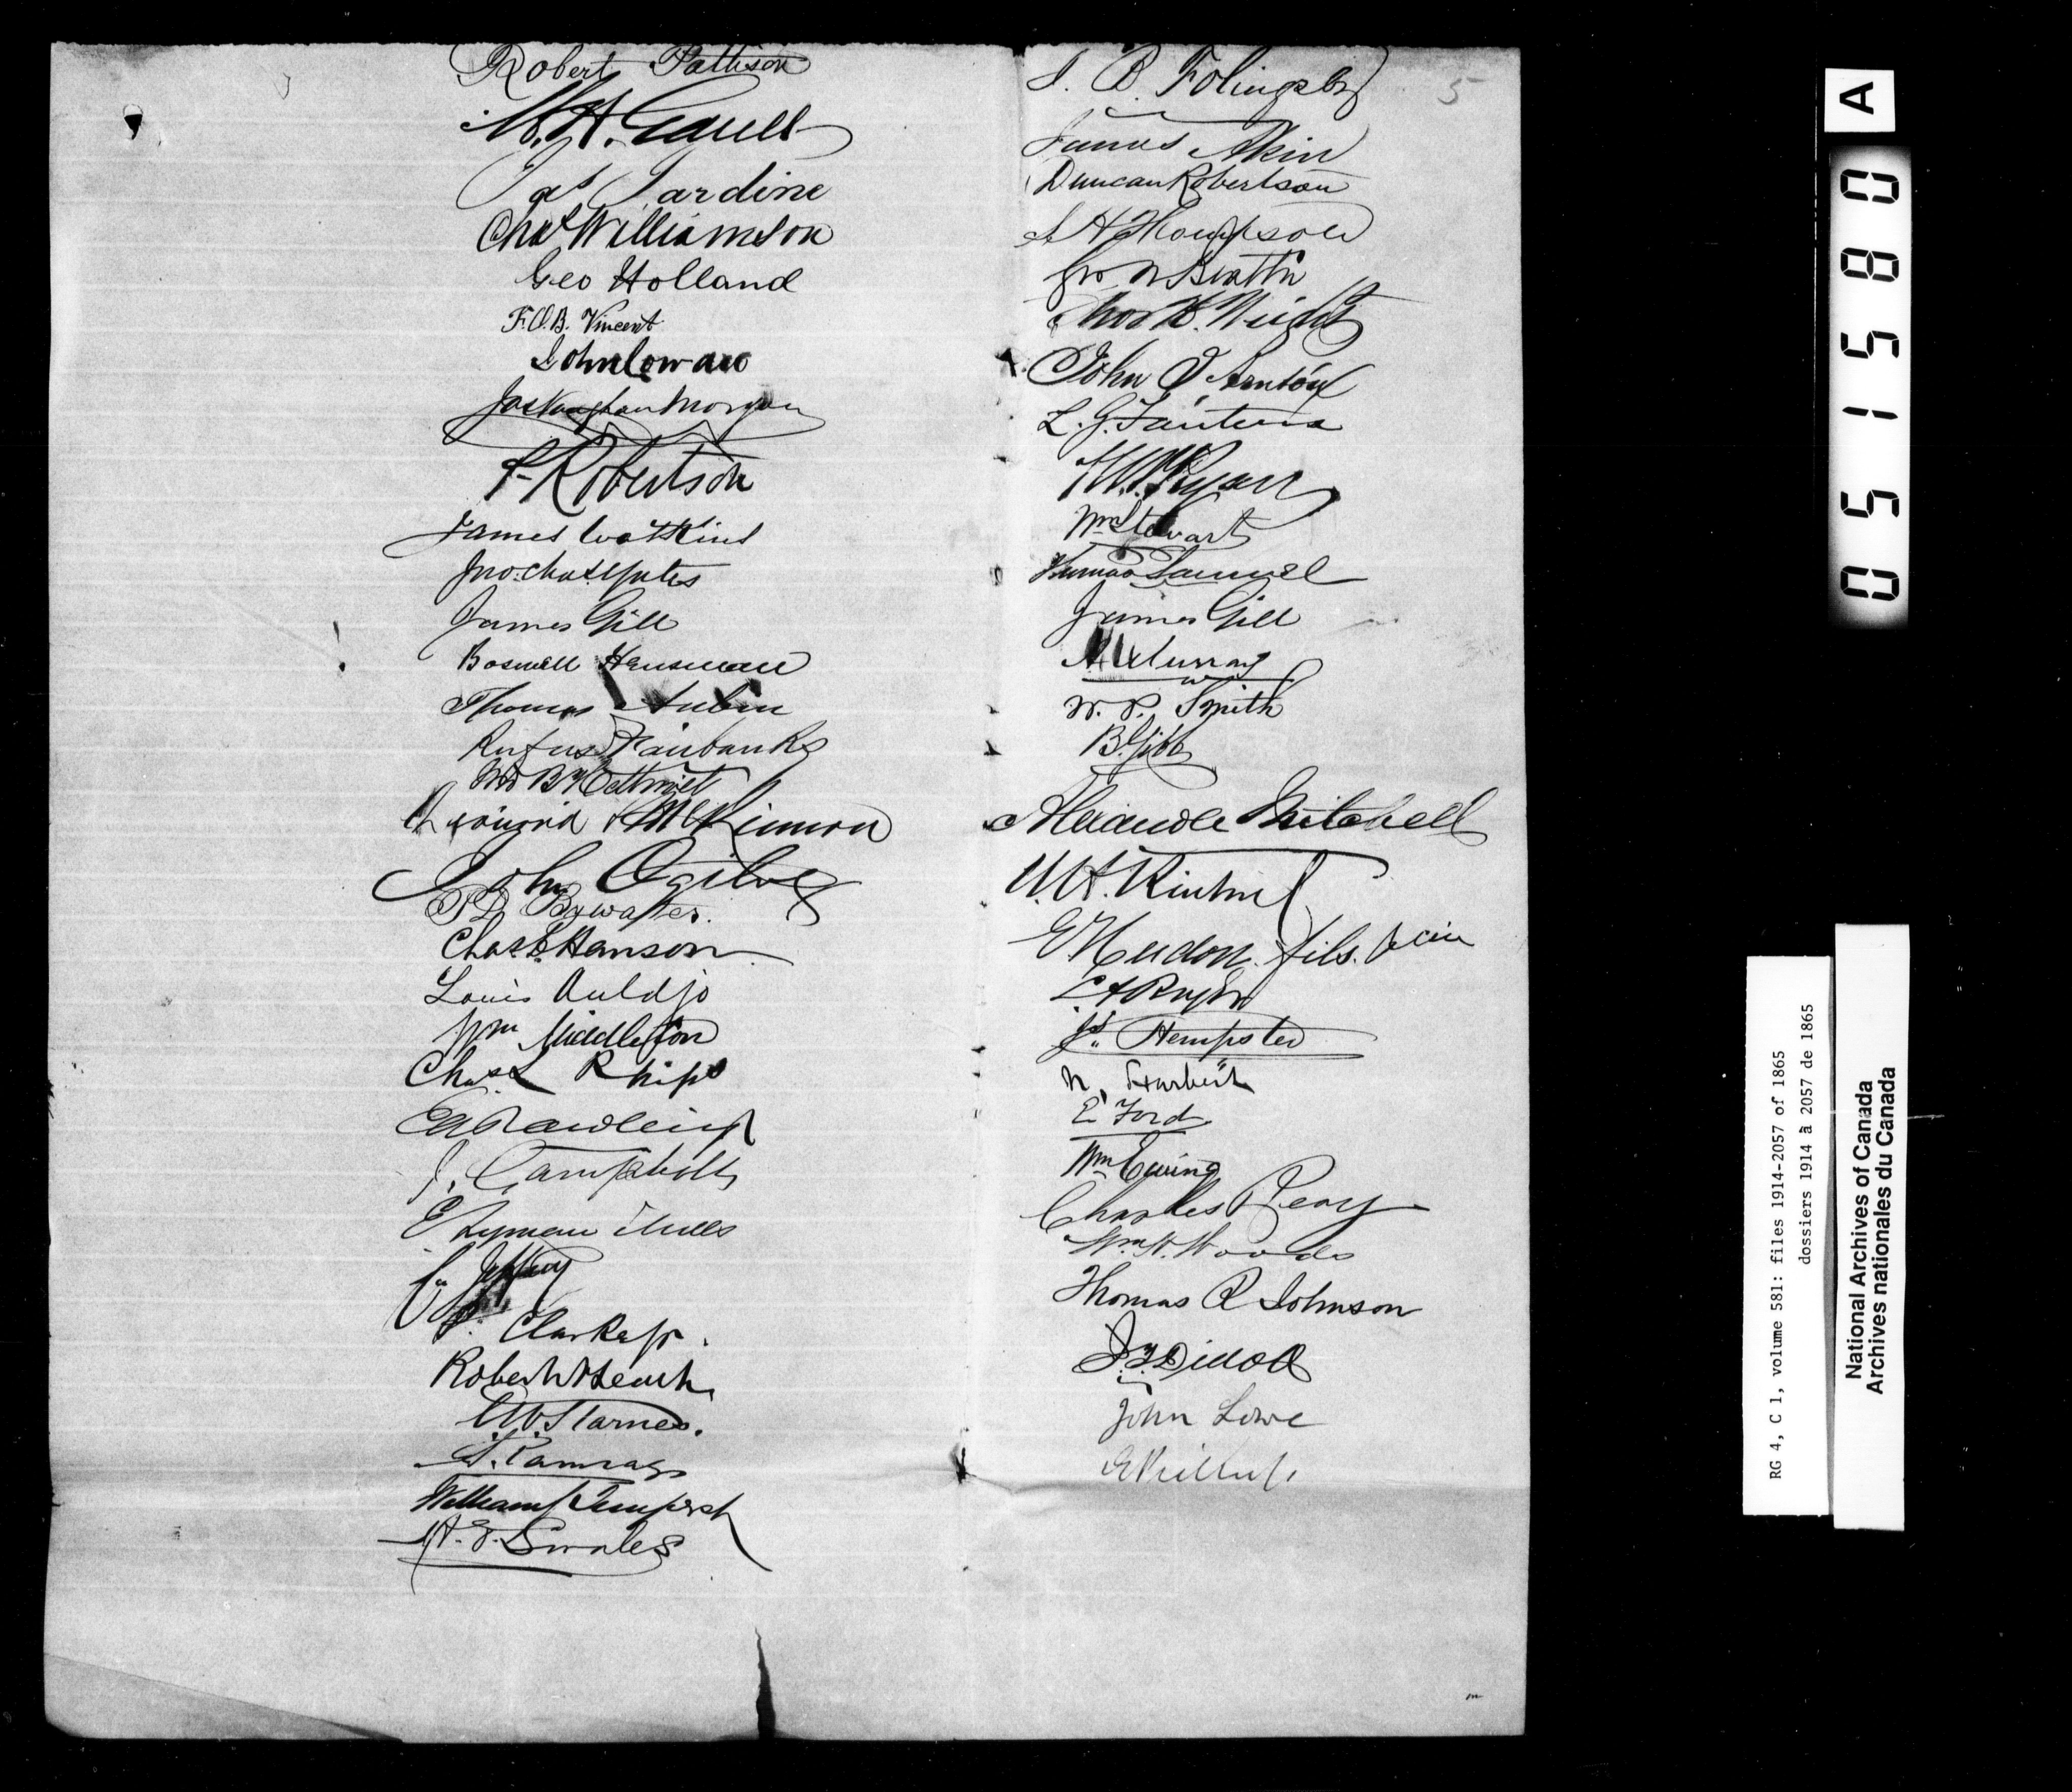 Robert Pattison
M. H. Gault
Jas Jardine
Chas Williamson
Geo Holland
F. O. B. Vincent
John Cowan
Jas Vaughan Morgan
A Robertson
James Watkins
Jno. Chas Spates
James Gill
Boswell Hensman
Thomas Aubin
Rufus Fairbanks
Wm B
McKinnon
John Ogilvy
P D Bywater.
Chas E Hanson
Louis Auldjo
Wm Middleton
Chas L Rhips
E A Rawlings
J. Campbell
E Lyman Mills
Jeffery
Clarke Jr.
Robert
W Starnes.
Ramsay
William Tempest
Swales
J. B. Folingsby
5
James Akin
Duncan Robertson
Thompson
Geo W Beattie
Thos H. Wright
John J Arnton
L. G. Fauteux
Ryan
Wm Stewart
Thomas Samuel
James Gill
A Murray
W. P. Smith
B. Gibb
Alexander Mitchell
W. H.
E Hudon fils
Js. Hempsted
N.
E Ford
Wm Ewing
Charles Reay
Wm W. Woods
Thomas R Johnson
John Lowe
A
051580
RG 4, C 1, volume 581: files 1914-2057 of 1865
dossiers 1914 à 2057 de 1865
National Archives of Canada
Archives nationales du Canada